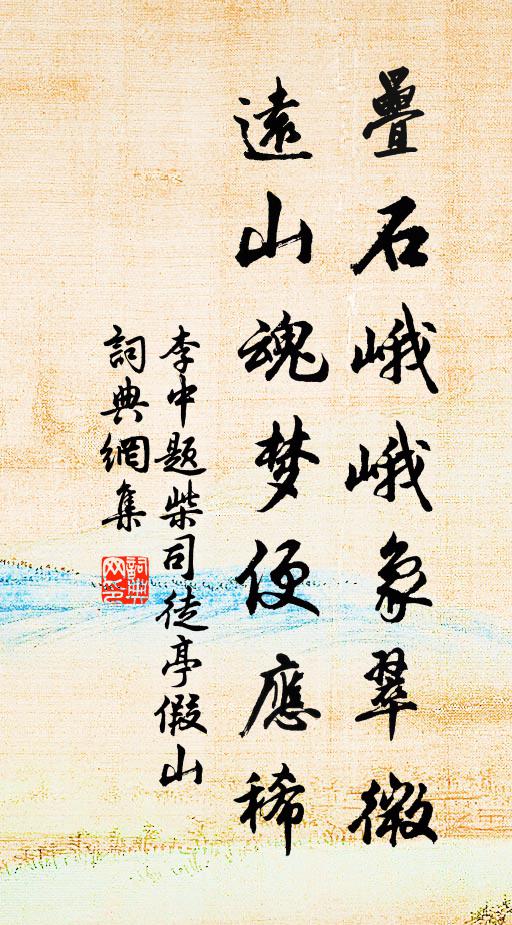 疊石峨峨象翠微
遠山魂梦便應稀
李中題柴司徒亭假山
詞典網集
詞典
网印